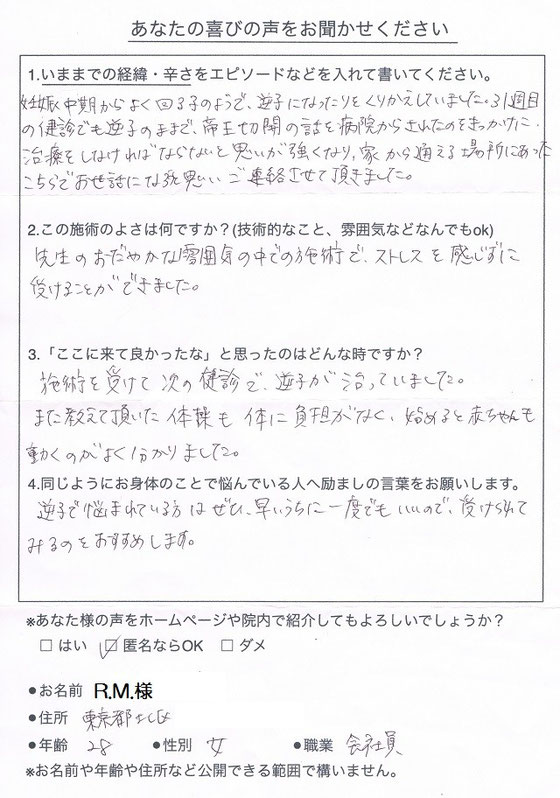 あなたの喜びの声をお聞かせください
1.いままでの経緯・辛さをエピソードなどを入れて書いてください。
妊娠中期からよく回る子のようで、逆子になったりをくりかえしていました。31週目
の健診でも逆子のままで、帝王切開の話を病院からされたのをきっかけに、
治療をしなければならないと思いが強くなり、家から通える場所にあった
こちらでお世話になろうと思い ご連絡させて頂きました。
2.この施術のよさは何ですか？(技術的なこと、雰囲気などなんでもok)
先生のおだやかな雰囲気の中での施術で、ストレスを感じずに
受けることができました。
3.「ここに来て良かったな」と思ったのはどんな時ですか？
施術を受けて次の健診で、逆子が治っていました。
また教えて頂いた体操も体に負担がなく、始めると赤ちゃんも
動くのがよく分かりました。
4.同じようにお身体のことで悩んでいる人へ励ましの言葉をお願いします。
逆子で悩まれている方はぜひ、早いうちに一度でもいいので、受けられて
みるのをおすすめします。
※あなた様の声をホームページや院内で紹介してもよろしいでしょうか？
□ はい ☑ 匿名ならOK □ ダメ
●お名前 R.M.様
●住所 東京都北区
●年齢 28 ●性別 女 ●職業 会社員
※お名前や年齢や住所など公開できる範囲で構いません。